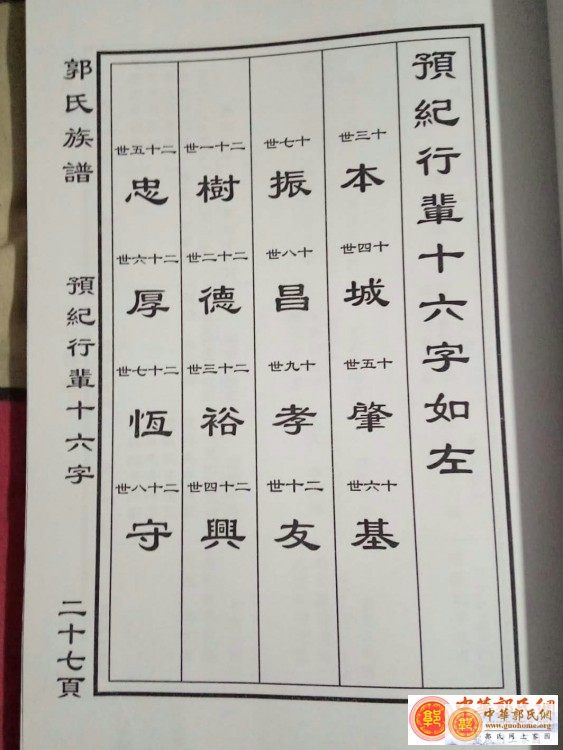 預紀行輩十六字如左
十三世
本
十四世
城
十五世
肇
十六世
基
十七世
振
十八世
昌
十九世
孝
二十世
友
二十一世
樹
二十二世
德
二十三世
裕
二十四世
興
二十五世
忠
二十六世
厚
二十七世
恆
二十八世
守
郭氏族譜
預紀行輩十六字
二十七頁
中華郭氏網
www.guohome.org
郭氏网上家园